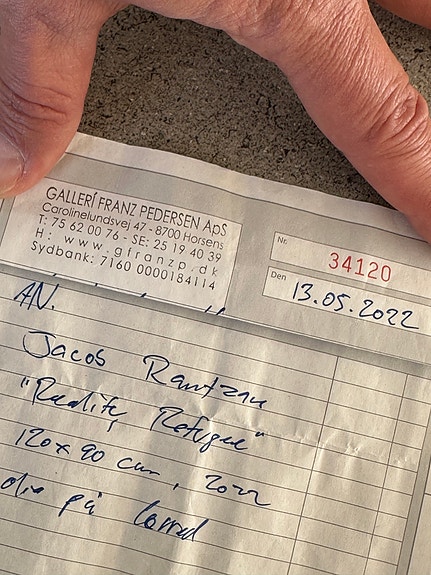 GALLERÍ FRANZ PEDERSEN ApS
Carolinelundsvej 47 - 8700 Horsens
T: 75 62 00 76 - SE: 25 19 40 39
H: www.gfranzp.dk
Sydbank: 7160 0000184114
Nr. 34120
Den 13.05.2022
AN.
Jacob Rantzau
"Reality Refugee"
120x90 cm, 2022
olie på lærred